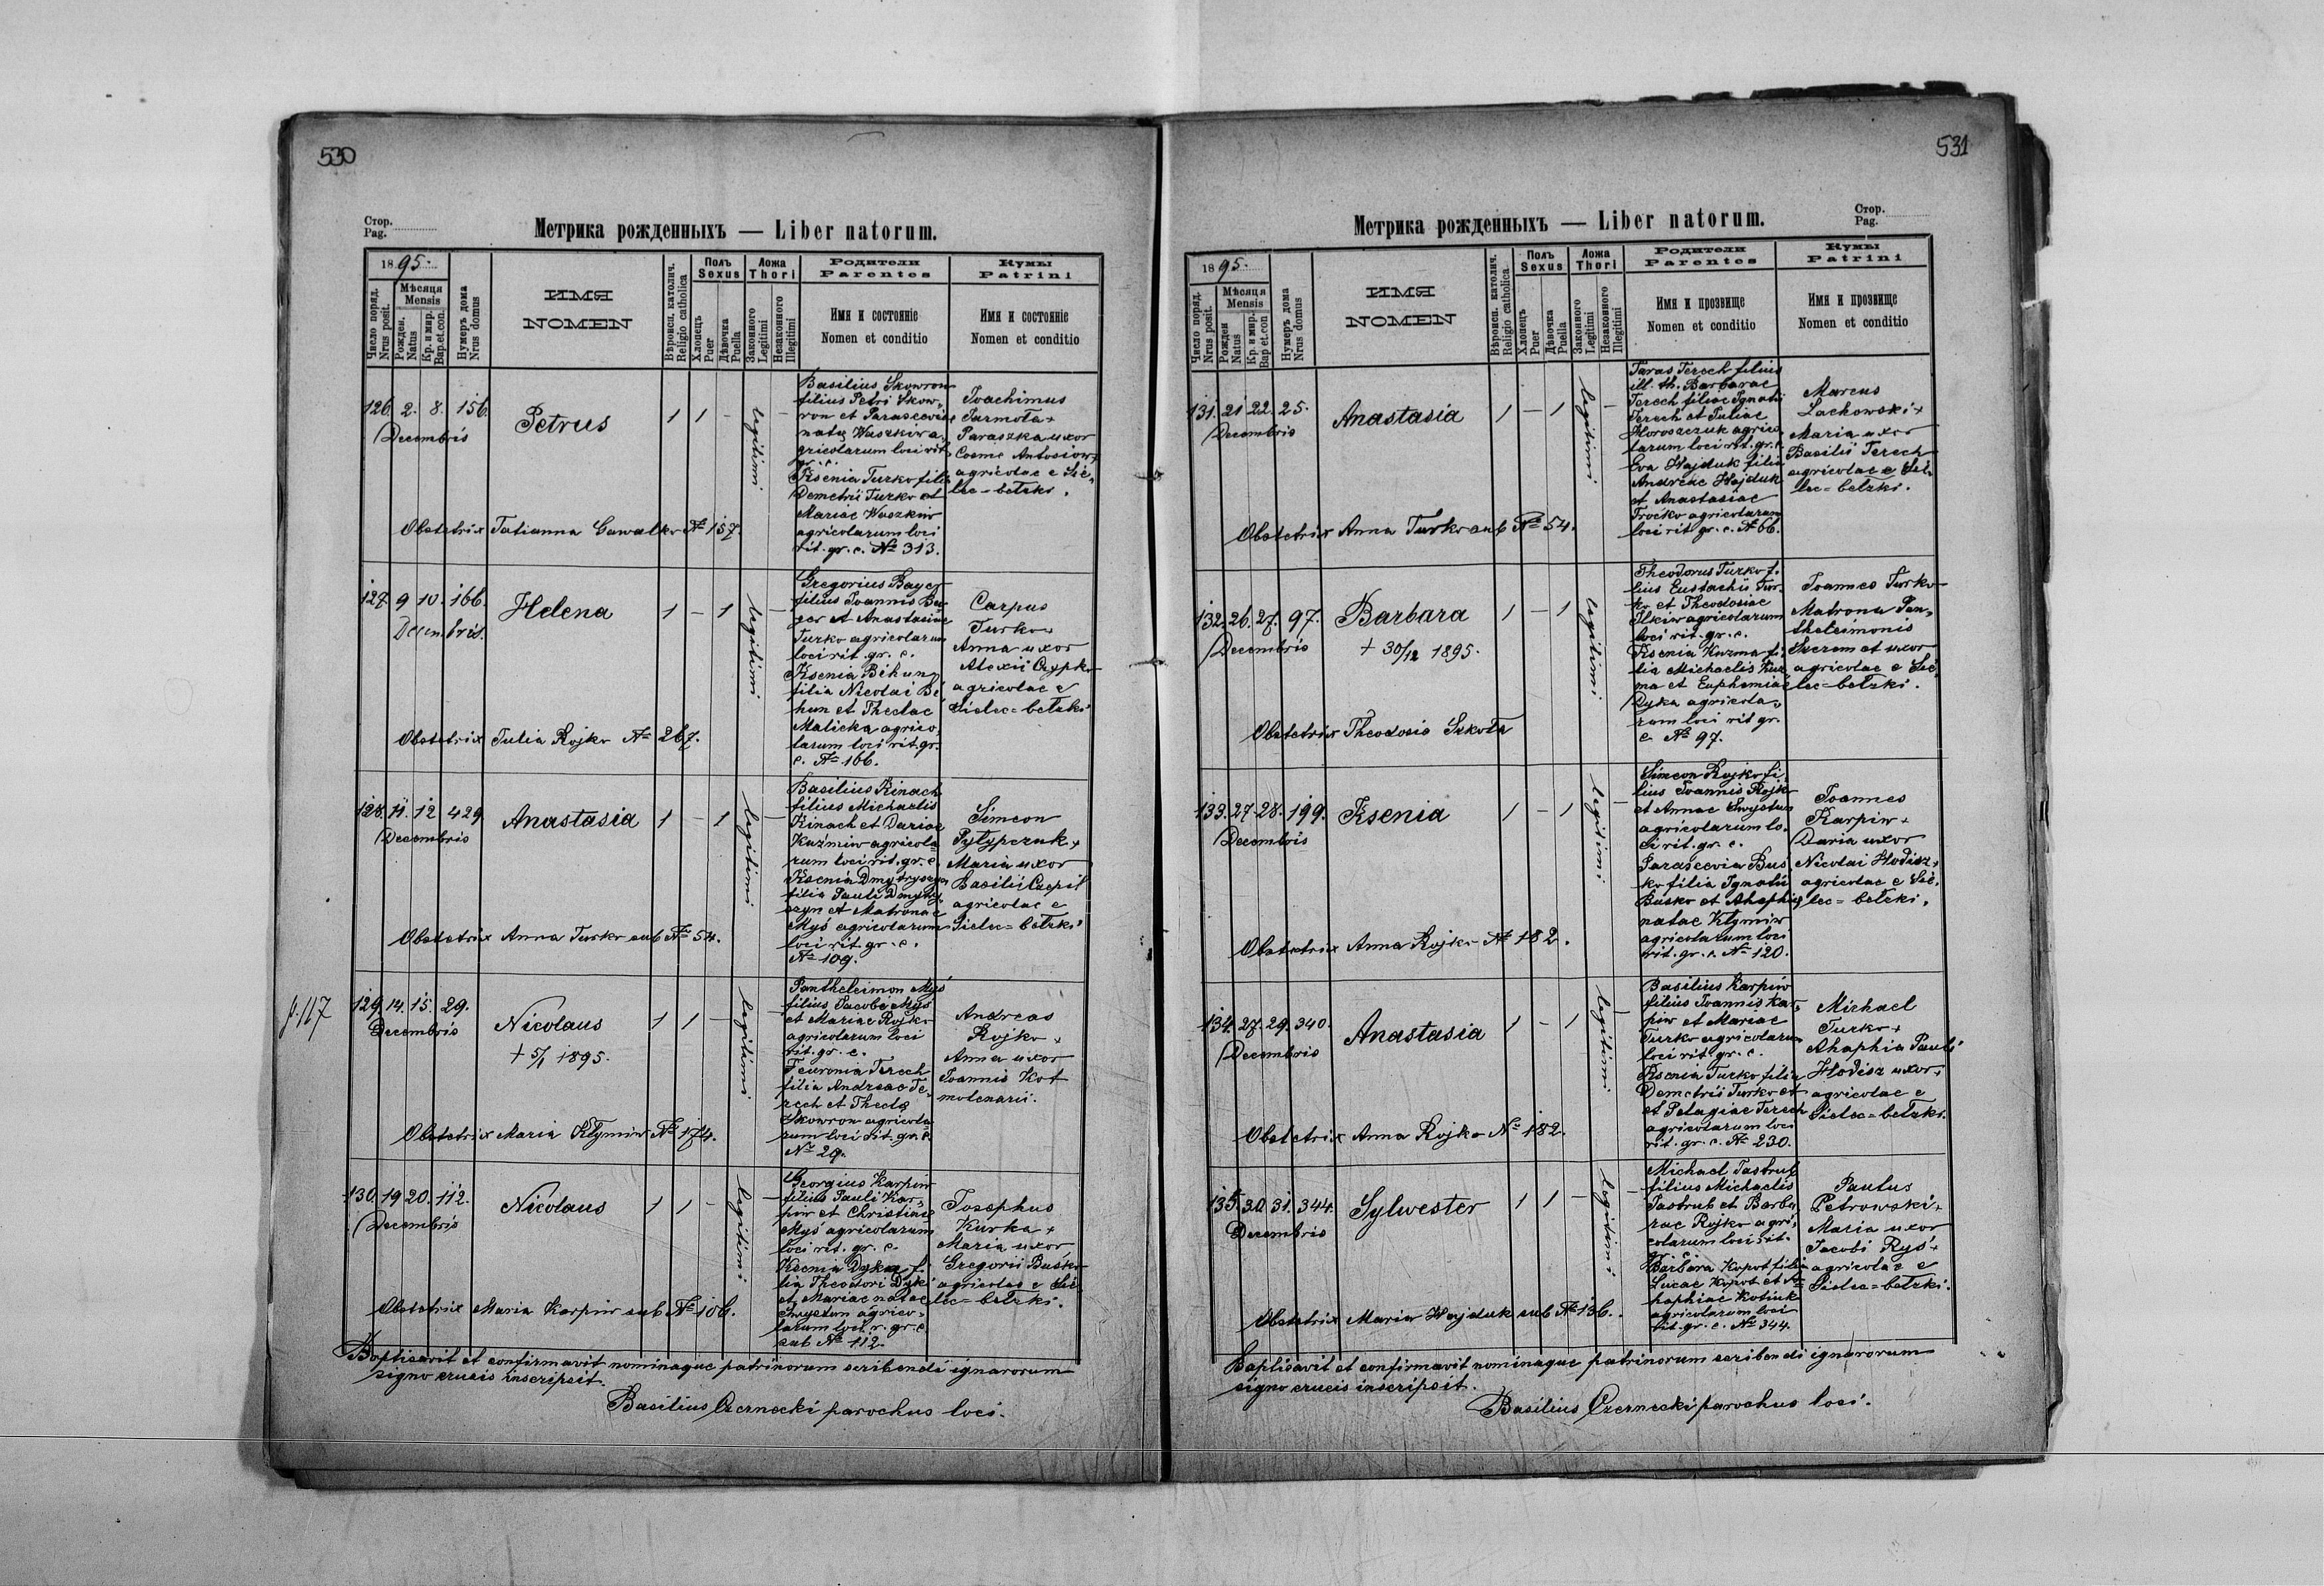 530
Стор.
Pag.
Метрика рожденныхъ — Liber natorum.
1895.
Число поряд.
Nrus posit.
Мѣсяця
Mensis
Рожден.
Natus
Кр. и мир.
Bap.et.con.
Нумеръ дома
Nrus domus
ИМЯ
NOMEN
Вѣроисп. католич.
Religio catholica
Полъ
Sexus
Хлопець
Puer
Дѣвочка
Puella
Ложа
Thori
Законного
Legitimi
Незаконного
Illegitimi
Родители
Parentes
Имя и состоянiе
Nomen et conditio
Кумы
Patrini
Имя и состоянiе
Nomen et conditio
126. 2. 8. 156.
Decembris
Petrus
1 1 -
legitimi
Basilius Skowron
filius Petri Skow„
ron et Parasceviae
natę Waszkiw a„
gricolarum loci rit.
gr. c.
Ksenia Turko filia
Demetrii Turko et
Mariae Waszkiw
agricolarum loci
rit. gr. c. № 313.
Joachimus
Jarmoła +
Paraszka uxor
Cosme Antosiow +
agricolae e Sie„
lec=bełzki.
Obstetrix Tatianna Gawalko № 157.
127. 9 10. 166.
Decembris.
Helena
1 - 1
legitimi
Gregorius Bayer
filius Joannis Ba„
yer et Anastasiae
Turko agricolarum
loci rit. gr. c.
Ksenia Bihun
filia Nicolai Bi
hun et Theclae
Malicka agrico„
larum loci rit. gr.
c. № 166.
Carpus
Turko +
Anna uxor
Alexii Czypko
agricolae e
Sielec=bełzki
Obstetrix Julia Rojko № 267.
128. 11. 12 429
Decembris
Anastasia
1 - 1
legitimi
Basilius Kinach
filius Michaelis
Kinach et Dariae
Kuźmiw agricola„
rum loci rit. gr. c.
Ksenia Dmytryszyn
filia Pauli Dmytry„
szyn et Matronae
Myś agricolarum
loci rit. gr. c.
№ 109.
Simeon
Pyłypczuk +
Maria uxor
Basilii
agricolae e
Sielec=bełzki
Obstetrix Anna Turko sub № 54.
129. 14. 15. 29.
Decembris
Nicolaus
+ 5/1 1895.
1 1 -
legitimi
Pantheleimon Myś
filius Jacobi Myś
et Mariae Rojko
agricolarum loci
rit. gr. c.
Feuronia Terech
filia Andreae Te„
rech et Theclę
Skowron agricola
rum loci rit. gr. c.
№ 29.
Andreas
Rojko +
Anna uxor
Joannis Kot
molenarii.
Obstetrix Maria Kłymiw № 174.
130. 19 20. 112.
Decembris
Nicolaus
1 1 -
legitimi
Georgius Karpiw
filius Pauli Kar„
piw et Christinae
Myś agricolarum
loci rit. gr. c.
Ksenia Dyka fi
lia Theodori Dyki
et Mariae natae
Smystun agrico„
larum loci r. gr. c.
sub № 112.
Josephus
Kurka +
Maria uxor
Gregorii Busko
agricolae e Sie„
lec=bełzki.
Obstetrix Maria Karpiw sub № 106.
Baptisavit et confirmavit nominaque patrinorum scribendi ignarorum
signo crucis inscripsit.
Basilius Czernecki parochus loci.
531
Стор.
Pag.
Метрика рожденныхъ — Liber natorum.
1895.
Число поряд.
Nrus posit.
Мѣсяця
Mensis
Рожден
Natus
Кр. и мир.
Bap et.con
Нумеръ дома
Nrus domus
ИМЯ
NOMEN
Вѣроисп. католич.
Religio catholica
Полъ
Sexus
Хлопець
Puer
Дѣвочка
Puella
Ложа
Thori
Законного
Legitimi
Незаконного
Illegitimi
Родители
Parentes
Имя и прозвище
Nomen et conditio
Кумы
Patrini
Имя и прозвище
Nomen et conditio
131. 21 22. 25.
Decembris
Anastasia
1 - 1
legitimi
Taras Terech filius
ill. th. Barbarae
Terech filiae Ignatii
Terech et Juliae
Horoszczuk agrico„
larum loci rit. gr. c.
Eva Hajduk filia
Andreae Hajduk
et Anastasiae
Troćko agricolarum
loci rit gr. c. № 66.
Marcus
Lachowski +
Maria uxor
Basilii Terech
agricolae e Sie„
lec=bełzki.
Obstetrix Anna Turko sub № 54.
132. 26. 27. 97.
Decembris
Barbara
+ 30/12 1895.
1 - 1
legitimi
Theodorus Turko fi„
lius Eustachii Tur„
ko et Theodosiae
Ilkiw agricolarum
loci rit. gr. c.
Ksenia Kuzma fi
lia Michaelis Kuz„
ma et Euphemiae
Dyka agricola„
rum loci rit gr.
c. № 97.
Joannes Turko
Matrona Pan„
theleimonis
uxor
agricolae e Sie„
lec=bełzki.
Obstetrix Theodosio Szkoła
133. 27. 28. 199.
Decembris
Ksenia
1 - 1
legitimi
Simeon Rojko fi
lius Joannis Rojko
et Annae Smystun
agricolarum lo„
ci rit. gr. c.
Parascevia Bus„
ko filia Ignatii
Busko et Ahaphię
natae Kłymiw
agricolarum loci
rit. gr. c. № 120.
Joannes
Karpiw +
Daria uxor
Nicolai Hodisz +
agricolae e Sie„
lec=bełzki.
Obstetrix Anna Rojko № 182.
134. 27. 29. 340.
Decembris
Anastasia
1 - 1
legitimi
Basilius Karpiw
filius Joannis Kar„
piw et Mariae
Turko agricolarum
loci rit. gr. c.
Ksenia Turko filia
Demetrii Turko et
et Pelagiae Terech
agricolarum loci
rit. gr. c. № 230.
Michael
Turko +
Ahaphia Pauli
Hodisz uxor +
agricolae e
Sielec=bełzki.
Obstetrix Anna Rojko № 182.
135. 30. 31. 344.
Decembris
Sylwester
1 1 -
legitimi
Michael Jastrub
filius Michaelis
Jastrub et Barba
rae Rojko agri„
colarum loci rit.
Barbara Kopot filia
Lucae Kopot et A=
haphiae Kotiuk
agricolarum loci
rit. gr. c. № 344.
Paulus
Petrowski +
Maria uxor
Jacobi Ryś +
agricolae e
Sielec=bełzki.
Obstetrix Maria Hajduk sub № 136.
Baptisavit et confirmavit nominaque patrinorum scribendi ignarorum
signo crucis inscripsit.
Basilius Czernecki parochus loci.